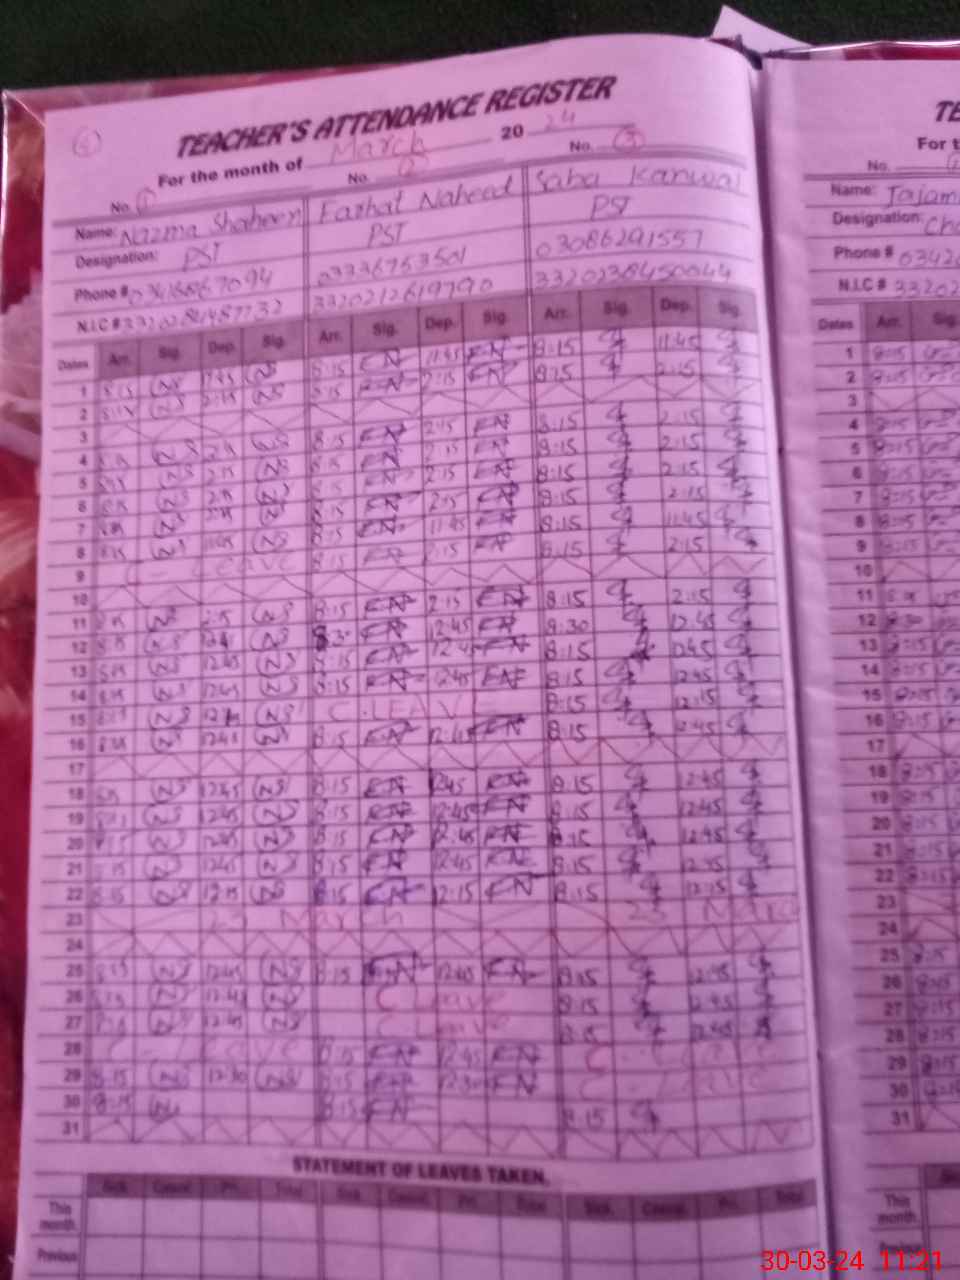 TEACHER'S ATTENDANCE REGISTER
For the month of March 20 24
No. 1 No. 2 No. 3
Name: Nazma Shaheen Farhat Naheed Saba Kanwal
Designation: PST PST PST
Phone # 03336753501 03086291557
N.I.C # 3320212619790 3320238450044
Dates Arr. Sig. Dep. Sig. Arr. Sig. Dep. Sig. Arr. Sig. Dep. Sig.
1 8:15 NS 11:45 NS 8:15 FN 11:45 FN 8:15 11:45
2 8:15 NS 2:15 NS 8:15 FN 2:15 FN 8:15 2:15
3
4 8:15 NS 2:15 NS 8:15 FN 2:15 FN 8:15 2:15
5 8:15 NS 2:15 NS 8:15 FN 2:15 FN 8:15 2:15
6 8:15 NS 2:15 NS 8:15 FN 2:15 FN 8:15 2:15
7 8:15 NS 2:15 NS 8:15 FN 2:15 FN 8:15 2:15
8 8:15 NS 11:45 NS 8:15 FN 11:45 FN 8:15 11:45
9 C - Leave 8:15 FN 2:15 FN 8:15 2:15
10
11 8:15 NS 2:15 NS 8:15 FN 2:15 FN 8:15 2:15
12 NS NS 8:30 FN 12:45 FN 8:30 12:45
13 8:15 NS 12:45 NS 8:15 FN 12:45 FN 8:15 12:45
14 8:15 NS 12:45 NS 8:15 FN 12:45 FN 8:15 12:45
15 NS NS C.LEAVE 8:15 12:15
16 NS 12:45 NS 8:15 FN 12:45 FN 8:15 12:45
17
18 8:15 NS 12:45 NS 8:15 FN 12:45 FN 8:15 12:45
19 NS 12:45 NS 8:15 FN 12:45 FN 8:15 12:45
20 8:15 NS 12:45 NS 8:15 FN 12:45 FN 8:15 12:45
21 8:15 NS 12:45 NS 8:15 FN 12:45 FN 8:15 12:45
22 8:15 NS 12:15 NS 8:15 FN 12:15 FN 8:15 12:15
23 23 March 23 Marc
24
25 8:15 NS 12:45 NS 8:15 FN 12:45 FN 8:15 12:45
26 8:15 NS 12:45 NS C Leave 8:15 12:45
27 NS 12:45 NS C Leave 8:15 12:45
28 C - Leave 8:15 FN 12:45 FN C - Leave
29 8:15 NS 12:30 NS 8:15 FN 12:30 FN C - Leave
30 8:15 NS 8:15 FN 8:15
31
STATEMENT OF LEAVES TAKEN.
Sick. Casual. Pri. Total Sick. Casual. Pri. Total Sick. Casual. Pri. Total
This month.
Previous
TE
For t
No.
Name: Tajam
Designation: Ch
Phone # 0342
N.I.C # 3320
Dates Arr. Sig.
1 8:15
2 8:15
3
4 8:15
5 8:15
6 8:15
7 8:15
8 8:15
9 8:15
10
11
12 8:30
13 8:15
14 8:15
15 8:15
16 8:15
17
18 8:15
19 8:15
20 8:15
21 8:15
22 8:15
23
24
25 8:15
26 8:15
27 8:15
28 8:15
29 8:15
30 8:15
31
This month.
Previous
30-03-24 11:21